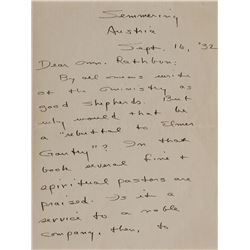 Semmering
Austria
Sept. 16, '32
Dear Mr. Rathbun:
By all means write
of the ministry as
good shepherds. But
why would that be
a "rebuttal to Elmer
Gantry"? In that
book several fine &
spiritual pastors are
praised. Is it a
service to a noble
company, then, to